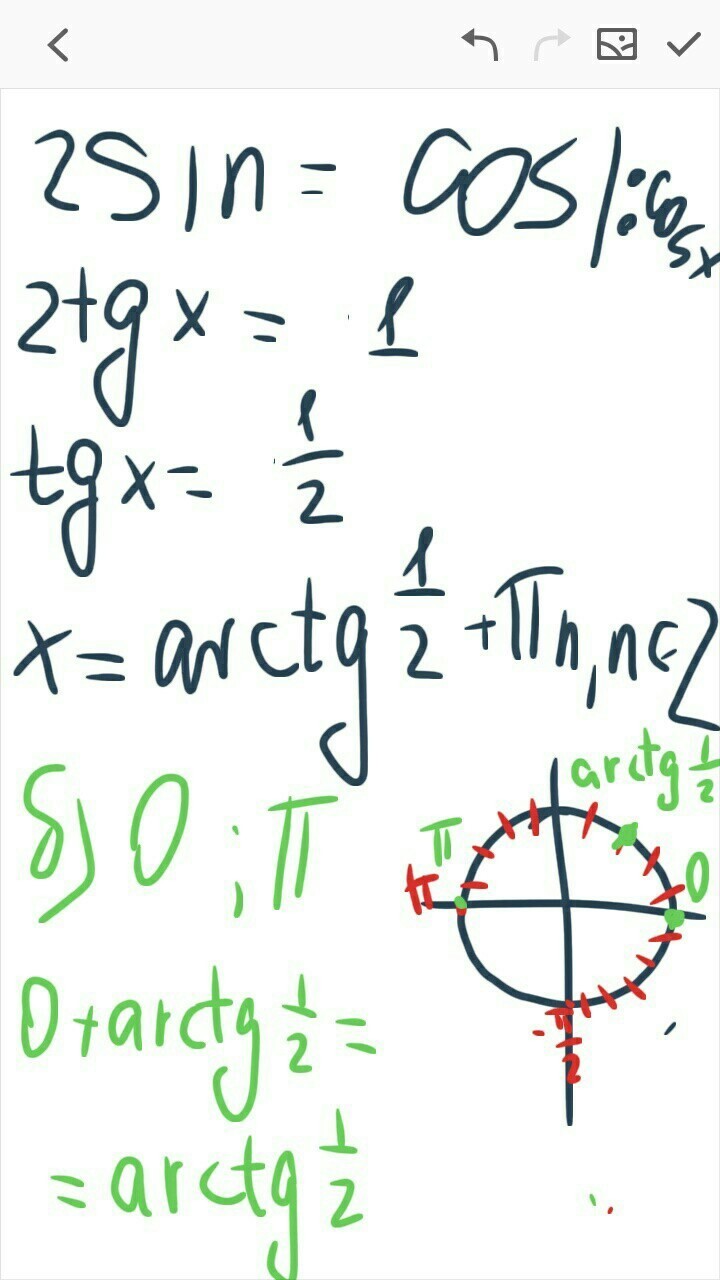 2sin = cos |:cosx
2tgx = 1
tgx = 1/2
x = arctg 1/2 + πn, n∈Z
б) 0 ; π
arctg 1/2
π
0
π
-π/2
0 + arctg 1/2 =
= arctg 1/2